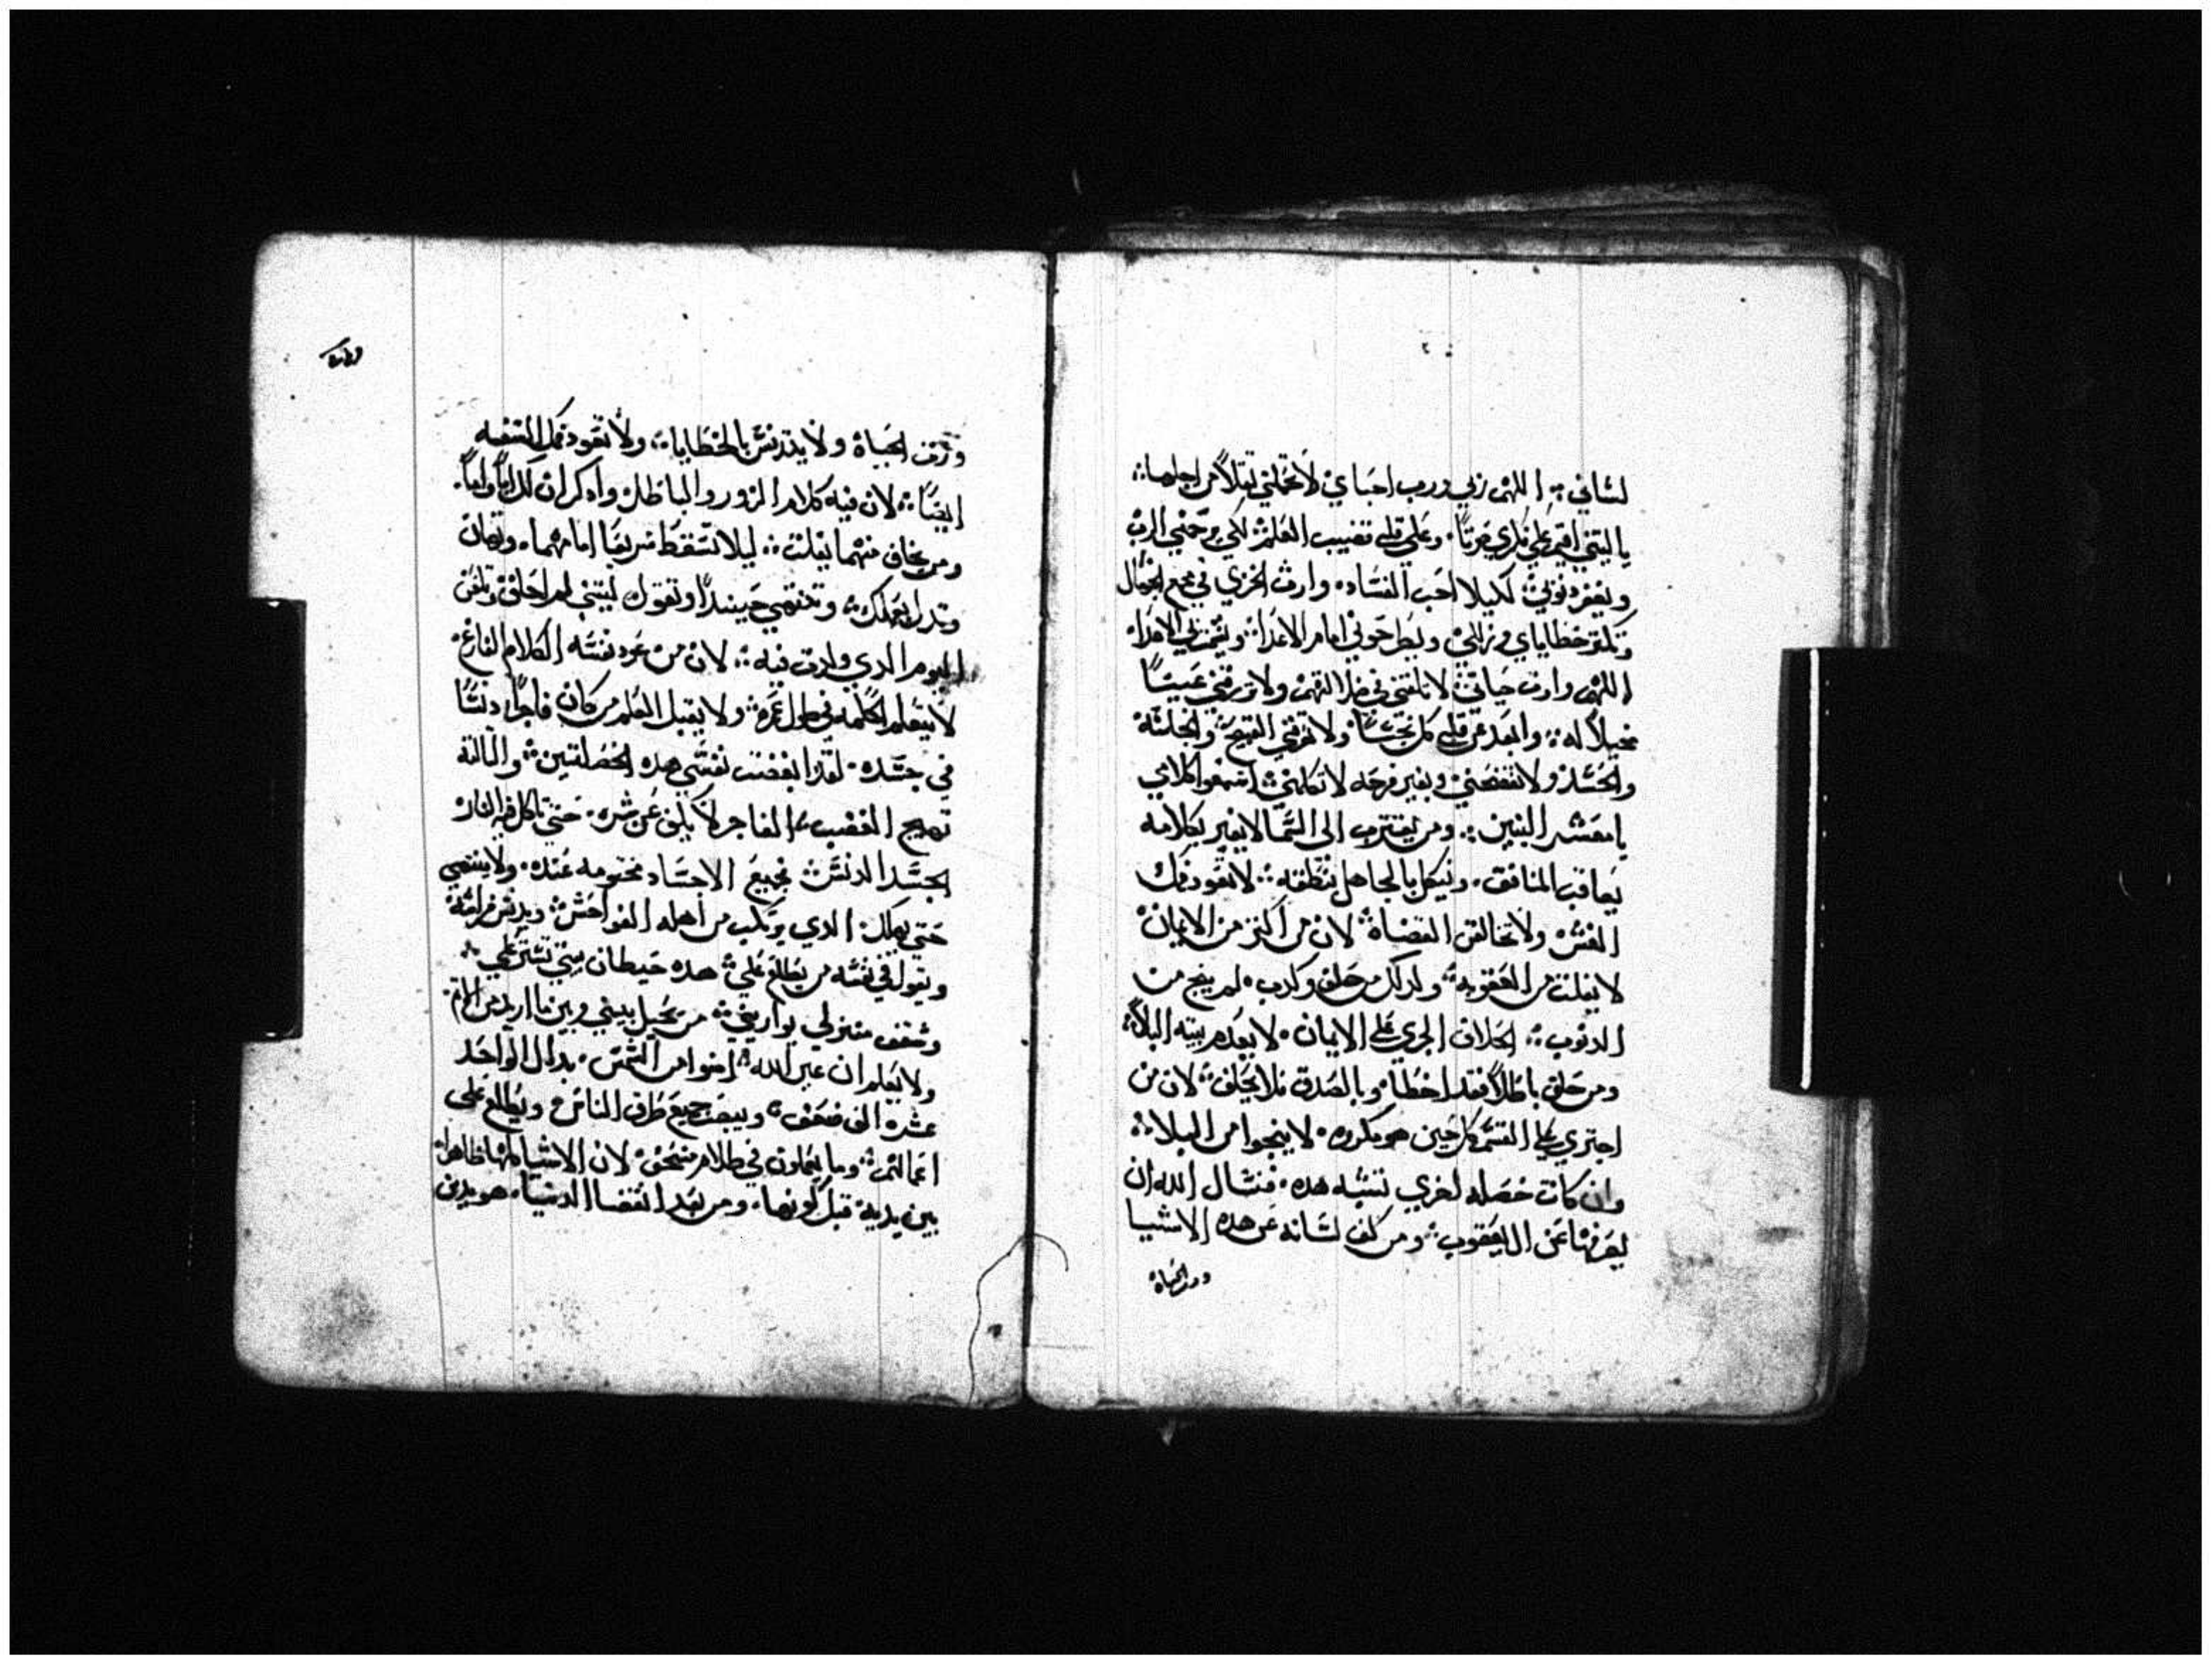 لساني ⁘ اللهم ربي ورب احباي لا تحملني تقلاً من اجلها ⁘
ياليتني اقيم علي فكري ضربتاً. وعلي قلبي تقضيب العلم لكي يرحمني الرب
ويغفر ذنوبي لكيلا احب الفساده وارث الخزي في مجمع الجهال
وتكتر خطاياي وزللي ويطرحوني امام الاعدا ويشمت بي الاعدا
اللهم وارت حياتي لا تلقني في ضلالتهم ولا ترزقني عينتاً
محيلاً له ⁘ وابعد عن قلبي كل نجساً ولا تورثني القبيح والخلسه
والحسد ولا تفضحني وبغير فرحه لا تكلمني اسمعوا كلامي
يا معشر البنين ⁘ ومن يقترب الي السما لا يغير بكلامه
يعاقب المنافق. وينكل بالجاهل بنطقه ⁘ لا تعود فمك
الغش ولا تخالف القضاة لان من اكتر من الايمان
لا يفلت من العقوبه ولدلك من حلف وكدب. لم ينج من
الدنوب ⁘ الحلاف الجري علي الايمان. لا يعدم بيته البلاً
ومن حلف باطلاً فقد اخطا وبالصدق فلا يحلف لان من
اجتري علي القسم كل حين هو مكروه. لا ينجوا من البلا ⁘
وان كانت خصله اخري تشبه هده. فنسال الله ان
يعرفها عن ال يعقوب ومن كف لسانه عن هده الاشيا
ورث الحياة
ورث الحياة ولا يتدنس بالخطايا ⁘ ولا تعود فمك السفه
ايضاً ⁘ لان فيه كلام الزور والباطل وادكر ان لك اباً واماً.
ومن يخاف منهما يفلت ⁘ ليلا تسقط سريعا امامهما. وتهان
وتدل بجهلك وتنتهي حينيداً وتقول ليتني لم اخلق وتلعن
اليوم الدي ولدت فيه ⁘ لان من عود نفسه الكلام الفارغ
لا يتعلم الحكمه في طول عمره ولا يقبل العلم من كان فاجراً دنساً
في جسده. لقد ابغضت نفسي هده الخصلتين والتالته
تهيج الغضب الفاجر لا يكف عن شره. حتي تاكل فيه النار
الجسد الدنس بجميع الاجساد مختومه عنده. ولا ينتهي
حتي يهلك الدي يرتكب من اهله الفواحش ويدنس فراشه
ويقول في نفسه من يطلع علي هده حيطان بيتي تستر علي
وسقف منزلي يواريني من يحيل بيني وبين ما اريد من الاتم
ولا يعلم ان عين الله اضوا من الشمس. بدل الواحد
عشره الف ضعف ويبصر جميع طرق الناس ويطلع علي
اعمالهم وما يعملون في ظلام يتحقق لان الاشيا كلها ظاهرة
بين يديه قبل كونها. ومن بعد انقضا الدنيا. هو يدين